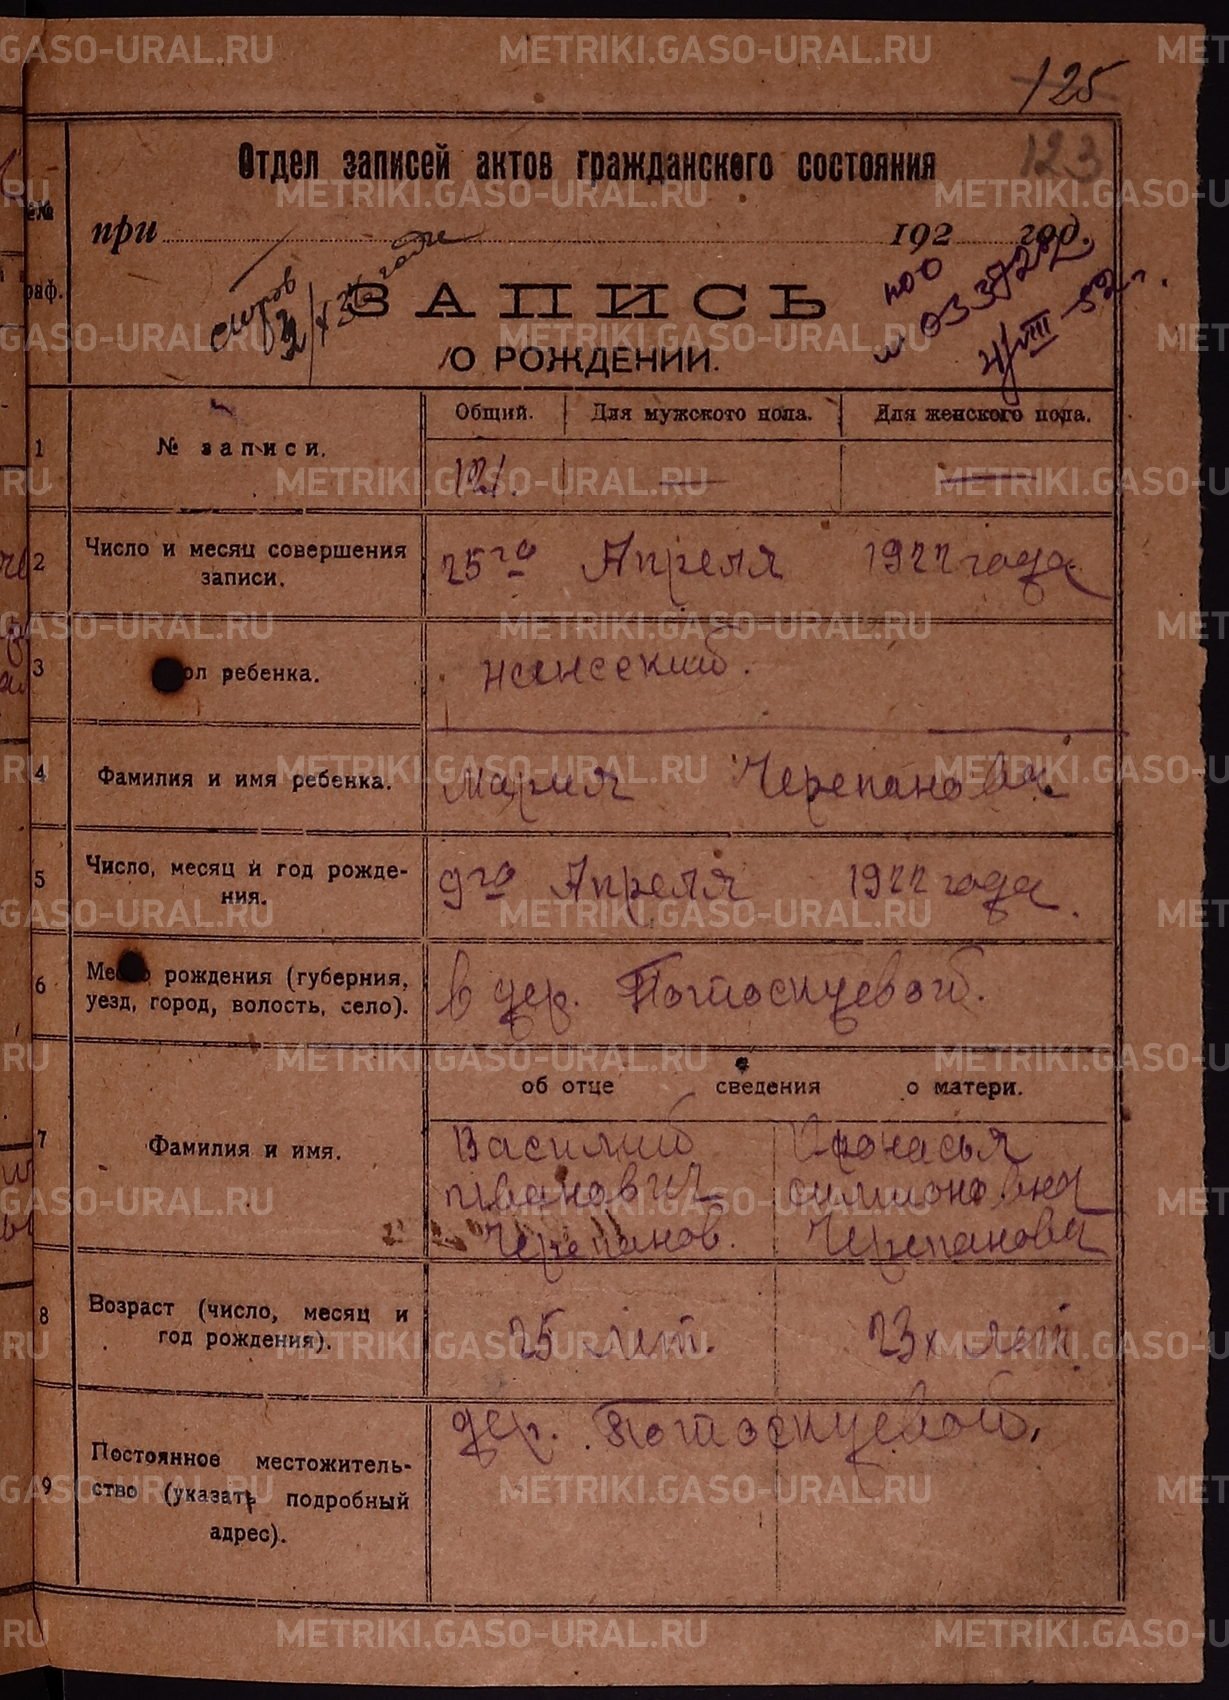 125
123
Отдел записей актов гражданского состояния
при 192 год.
ЗАПИСЬ
О РОЖДЕНИИ.
1 № записи.
Общий. Для мужского пола. Для женского пола.
121. — —
2 Число и месяц совершения
записи.
25го Апреля 1922 года
3 ол ребенка.
женский.
4 Фамилия и имя ребенка.
Мария Черепанова.
5 Число, месяц и год рожде-
ния.
9го Апреля 1922 года.
6 Место рождения (губерния,
уезд, город, волость, село).
в дер. Потоскуевой.
об отце сведения о матери.
7 Фамилия и имя.
Василий
Иванович
Черепанов.
Афонасья
симионовна
Черепанова
8 Возраст (число, месяц и
год рождения).
25 лет. 23х лет.
9 Постоянное местожитель-
ство (указать подробный
адрес).
дер. Потоскуевой.
METRIKI.GASO-URAL.RU